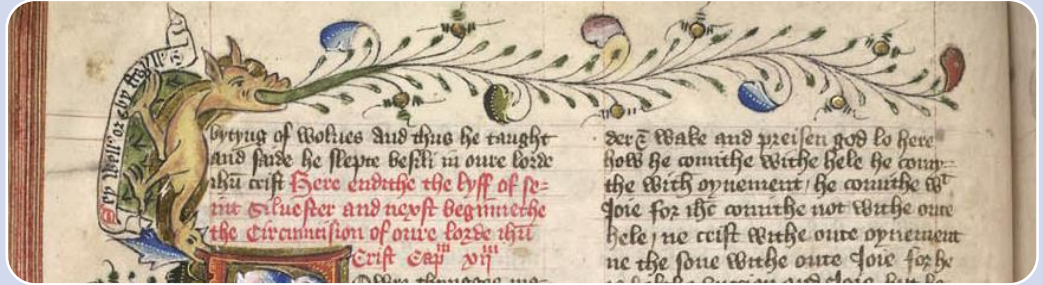 bytyng of wolues and thus he taught
and saide he slepte besili in oure lorde
ihu crist Here endithe the lyff of se-
int Siluester and nexst beginnethe
the Circumcision of oure lorde ihu
Crist Cap xij
dere wake and preisen god lo here
how he comithe withe hele he comy-
the with oynement / he comithe wt
Ioie for ihc comithe not withe oute
hele / ne crist withe oute oynement
ne the sone withe oute Ioie for he